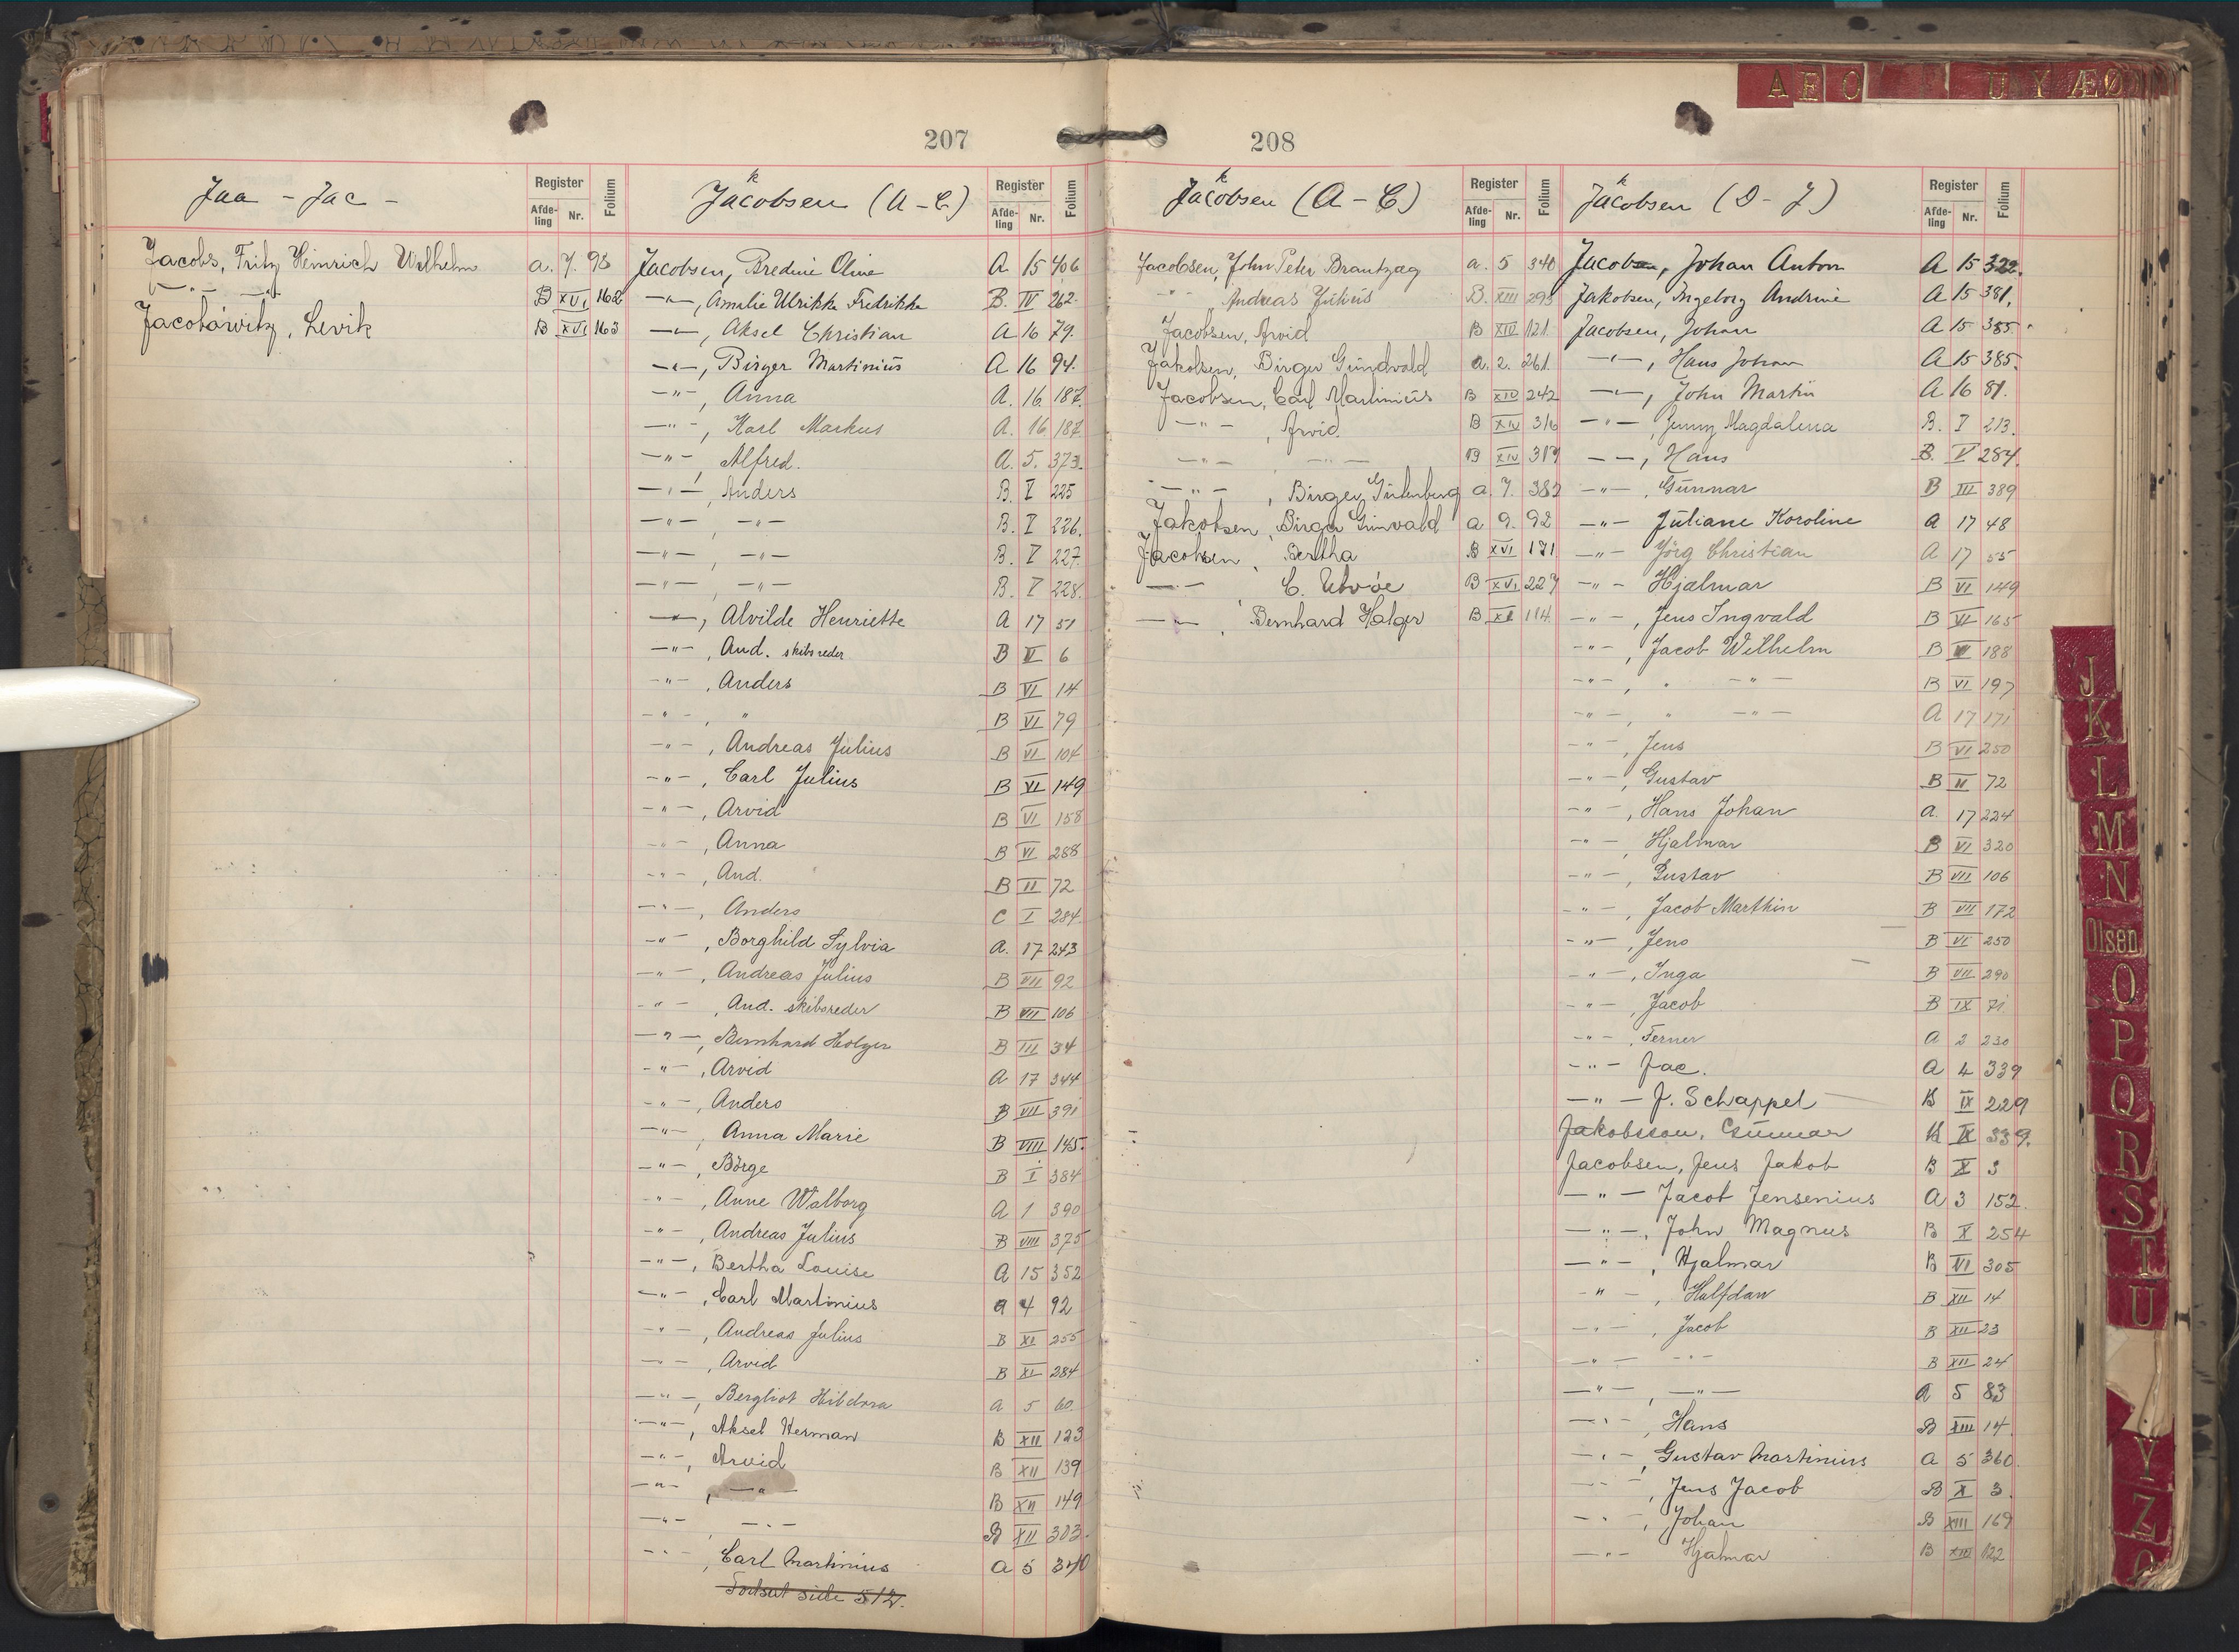 A E O U Y Æ Ø
207
Jaa - Jac -
Register Folium
Afde-ling Nr.
Jacobs, Fritz Heinrich Wilhelm a. 7. 98
— " — — " — B XVI 162
Jacobowitz, Levik B XVI 163
k
Jacobsen (A - C)
Register Folium
Afde-ling Nr.
Jacobsen, Bredine Oline A 15 406
— " —, Amalie Ulrikke Fredrikke B. IV 262.
— " —, Aksel Christian A 16 79.
— " —, Birger Martinius A 16 94.
— " —, Anna A. 16 187.
— " —, Karl Markus A. 16 187.
— " —, Alfred. A. 5. 373.
— " —, Anders B. V 225
— " —, — " — B. V 226.
— " —, — " — B. V 227.
— " —, — " — B. V 228.
— " —, Alvilde Henriette A 17 51
— " —, And. skibsreder B VI 6
— " —, Anders B VI 14
— " —, " B VI 79
— " —, Andreas Julius B VI 104
— " —, Carl Julius B VI 149
— " —, Arvid B VI 158
— " —, Anna B VI 288
— " —, And. B II 72
— " —, Anders C I 284.
— " —, Borghild Sylvia A. 17 243
— " —, Andreas Julius B VII 92
— " —, And. skibsreder B VII 106
— " —, Bernhard Holger B III 34
— " —, Arvid A 17 344
— " —, Anders B VII 391
— " —, Anna Marie B VIII 145.
— " —, Börge B I 384
— " —, Anne Walborg A 1 390
— " —, Andreas Julius B VIII 375
— " —, Bertha Louise A 15 352
— " —, Carl Martinius a 4 92
— " —, Andreas Julius B XI 255
— " —, Arvid B XI 284
— " —, Bergliot Hildora a 5 60.
— " —, Aksel Herman B XII 123
— " —, Arvid B XII 139
— " —, — " — B XII 149
— " —, — " — B XII 303.
— " —, Carl Martinius a 5 340
Fortsat side 512.
208
k
Jacobsen (A - C)
Register Folium
Afde-ling Nr.
Jacobsen, John Peter Brantzæg a. 5 340
— " — Andreas Julius B. XIII 295
Jacobsen, Arvid B XIV 121.
Jakobsen, Birger Gundvald a. 2. 261.
Jacobsen, Carl Martinius B XIV 242
— " —, Arvid. B XIV 316
— " — — " — B XIV 317
— " —, Birger Gutenberg a. 7. 382
Jakobsen, Birger Gunvald a 9. 92
Jacobsen, Bertha B XVI 171
— " — C. Utvöe B XVI 227
— " —, Bernhard Holger B XI 114
k
Jacobsen (D - J)
Register Folium
Afde-ling Nr.
Jacobsen, Johan Anton A 15 322.
Jakobsen, Ingeborg Andrine A 15 381.
Jacobsen, Johan A 15 385.
— " —, Hans Johan A 15 385.
— " —, John Martin A 16 81.
— " —, Jenny Magdalena B. I 213.
— " —, Hans B. V 284.
— " —, Gunnar B III 389
— " — Juliane Koroline A 17 48
— " — Jörg Christian A 17 55
— " — Hjalmar B VI 149
— " —, Jens Ingvald B VI 165
— " —, Jacob Wilhelm B VI 188
— " —, " — " — B VI 197
— " —, " — " — A 17 171
— " —, Jens B VI 250
— " —, Gustav B II 72
— " —, Hans Johan A. 17 224
— " —, Hjalmar B VI 320
— " —, Gustav B VII 106
— " —, Jacob Marthin B VII 172
— " —, Jens B VI 250
— " —, Inga B VII 290
— " —, Jacob B IX 71
— " —, Ferner A 2 230
— " — Jac. A 4 339
— " — J. Schappel B IX 229
Jakobsson, Gunnar B IX 339.
Jacobsen, Jens Jakob B X 3
— " — Jacob Jensenius A 3 152.
— " —, John Magnus B X 254
— " —, Hjalmar B VI 305
— " —, Halfdan B XII 14
— " —, Jacob B XII 23
— " — — " — B XII 24
— " —, — " — A 5 83
— " —, Hans B XIII 14
— " —, Gustav Martinius a 5 360.
— " —, Jens Jacob B X 3.
— " —, Johan B XIII 169
— " — Hjalmar B XIV 122
J
K
L
M
N
Olsen
O
P
Q
R
S
T
U
Y
Z